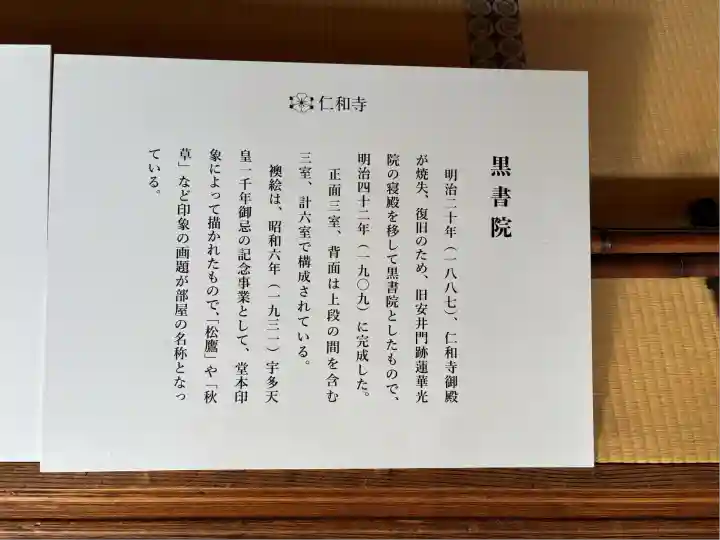 仁和寺
黒書院
明治二十年（一八八七）、仁和寺御殿
が焼失、復旧のため、旧安井門跡蓮華光
院の寝殿を移して黒書院としたもので、
明治四十二年（一九〇九）に完成した。
正面三室、背面は上段の間を含む
三室、計六室で構成されている。
襖絵は、昭和六年（一九三一）宇多天
皇一千年御忌の記念事業として、堂本印
象によって描かれたもので、「松鷹」や「秋
草」など印象の画題が部屋の名称となっ
ている。